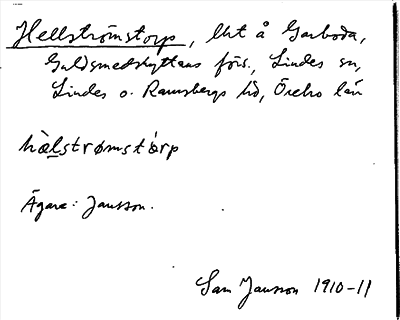 Hellströmstorp, lht å Garboda,
Guldsmedshyttans förs., Lindes sn,
Lindes o. Ramsbergs hd, Örebro län
hæ̀lstrømstɷ̀rp
Ägare: Jansson.
Sam Jansson 1910-11